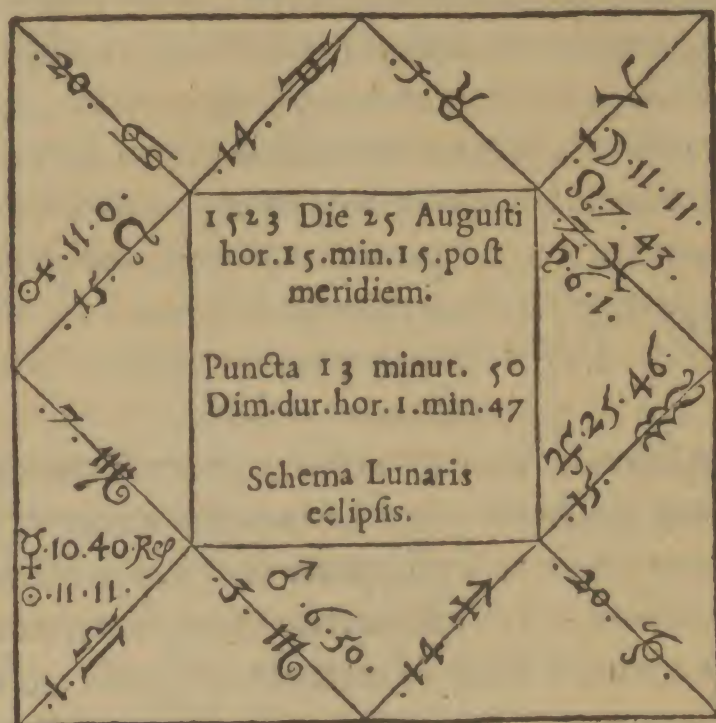 .20. ♋
.14. ♊
.3. ♉
.1. ♈
☽.11.11.
☊.7.43.
.7. ♓
♄.6.1.
♀.11.0.
.15. ♌
1523 Die 25 Auguſti
hor.15.min.15.poſt
meridiem.
Puncta 13 minut. 50
Dim.dur.hor.1.min.47
Schema Lunaris
eclipſis.
♃.25.46.
.15. ♒
.7. ♍
☿.10.40.℞
☉.11.11.
.1. ♎
♂.6.50.
.3. ♏
.14. ♐
.20. ♑